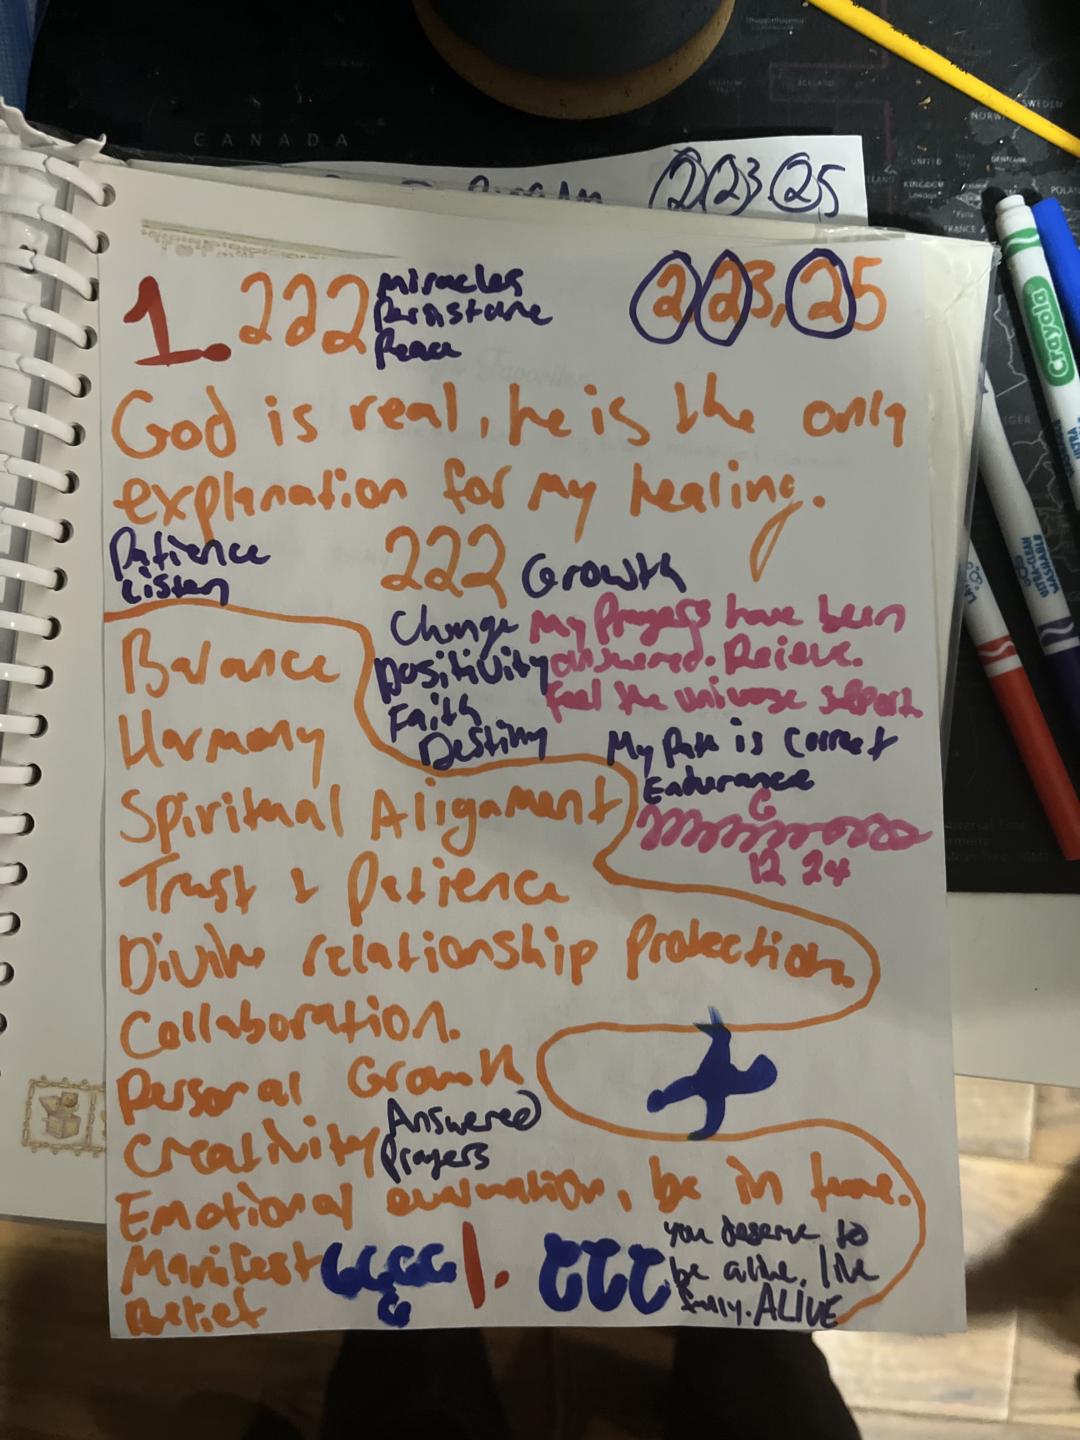 CANADA
2 23 25
1. 222 Miracles
Persistane
Peace
2 23, 25
God is real, he is the only
explanation for my healing.
Patience
Listen
222 Growth
Change
positivity
Faith
Destiny
My Prayers have been
answered. Recieve.
Feel the universe support
My Path is correct
Endurance
12 24
Balance
Harmony
Spiritual Aligament
Trust & Patience
Divine relationship Protection.
Collaboration.
Personal Growth
Creativity
Answered
Prayers
Emotional evaluation, be in tune.
Manifest
Belief
1.
you deserve to
be alive, live
fully. ALIVE
Crayola
SWEDEN